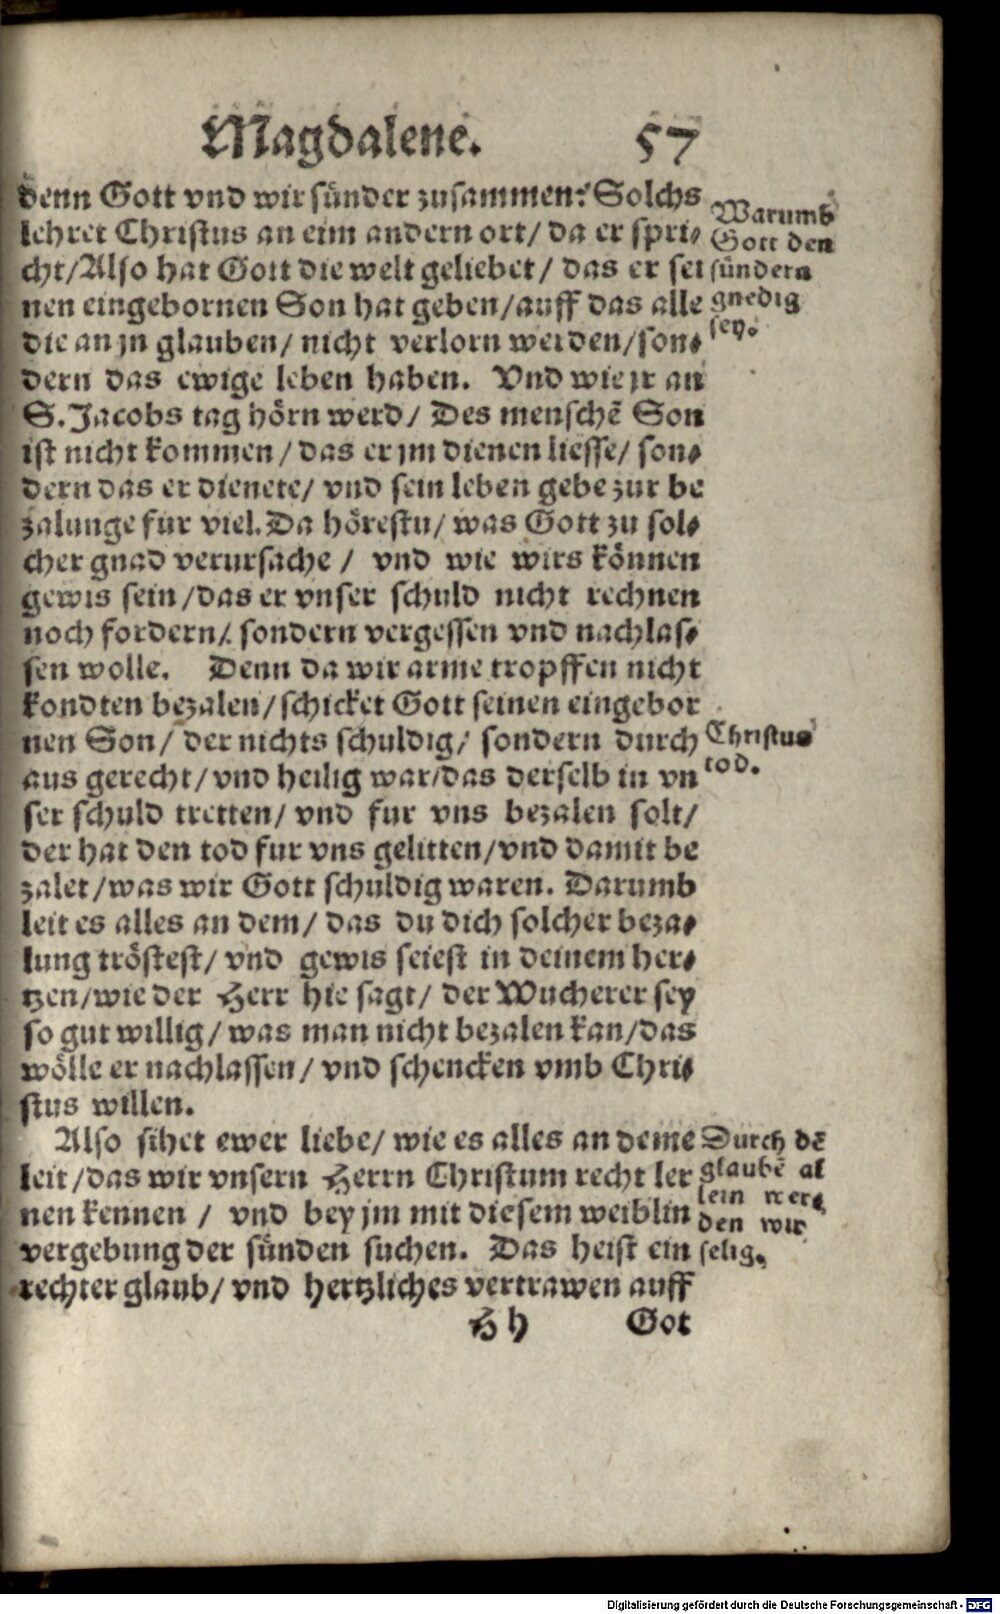 Magdalene. 57
denn Gott vnd wir sünder zusammen? Solchs
lehret Christus an eim andern ort/ da er spri⸗
cht/Also hat Gott die welt geliebet/ das er sei
nen eingebornen Son hat geben/auff das alle
die an jn glauben/ nicht verlorn werden/son⸗
dern das ewige leben haben. Vnd wie jr an
S. Jacobs tag hörn werd/ Des menschẽ Son
ist nicht kommen/das er jm dienen liesse/ son⸗
dern das er dienete/ vnd sein leben gebe zur be
zalunge fur viel. Da hörestu/ was Gott zu sol⸗
cher gnad verursache / vnd wie wirs können
gewis sein/das er vnser schuld nicht rechnen
noch fordern/ sondern vergessen vnd nachlas⸗
sen wolle. Denn da wir arme tropffen nicht
kondten bezalen/schicket Gott seinen eingebor
nen Son/ der nichts schuldig/ sondern durch
aus gerecht/vnd heilig war/das derselb in vn
ser schuld tretten/ vnd fur vns bezalen solt/
der hat den tod fur vns gelitten/vnd damit be
zalet/was wir Gott schuldig waren. Darumb
leit es alles an dem/ das du dich solcher beza⸗
lung tröstest/ vnd gewis seiest in deinem her⸗
tzen/wie der Herr hie sagt/ der Wucherer sey
so gut willig/ was man nicht bezalen kan/das
wölle er nachlassen/ vnd schencken vmb Chri⸗
stus willen.
Also sihet ewer liebe/ wie es alles an deme
leit/das wir vnsern Herrn Christum recht ler
nen kennen / vnd bey jm mit diesem weiblin
vergebung der sünden suchen. Das heist ein
rechter glaub/ vnd hertzliches vertrawen auff
Hh Got
Warumb
Gott den
sündern
gnedig
sey.
Christus
tod.
Durch dẽ
glaubẽ al
lein wer⸗
den wir
selig.
Digitalisierung gefördert durch die Deutsche Forschungsgemeinschaft - DFG